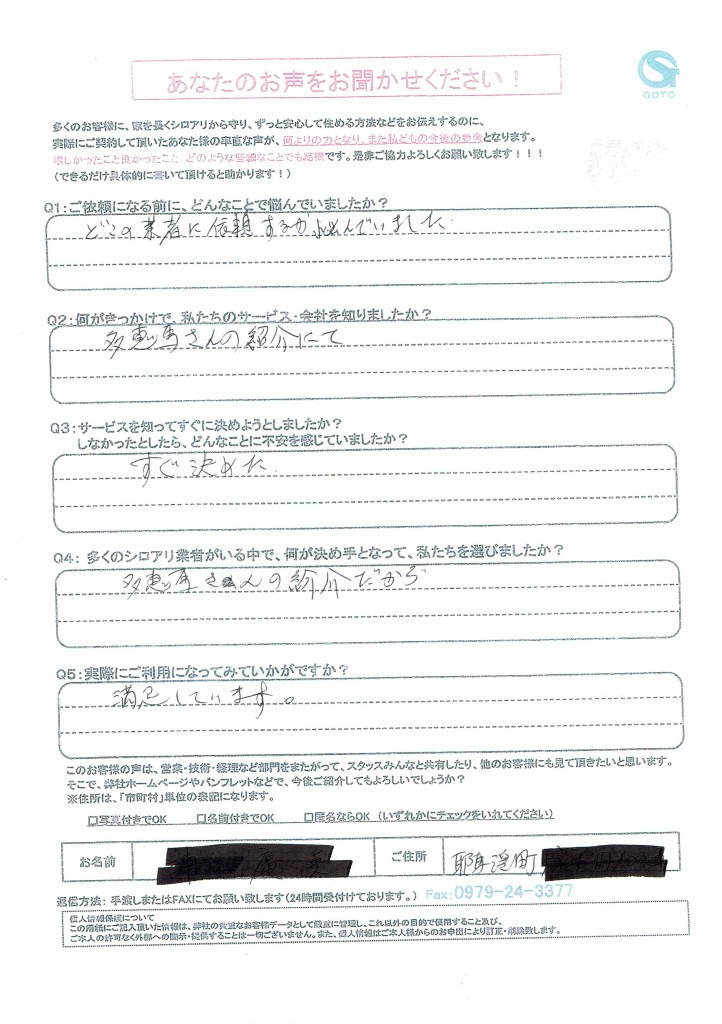 あなたのお声をお聞かせください！
GOTO
多くのお客様に、家を長くシロアリから守り、ずっと安心して住める方法などをお伝えするのに、
実際にご契約して頂いたあなた様の率直な声が、何よりの力となり、また私どもの今後の参考となります。
嬉しかったこと良かったこと、どのような些細なことでも結構です。是非ご協力よろしくお願い致します！！！
（できるだけ具体的に書いて頂けると助かります！）
Q1：ご依頼になる前に、どんなことで悩んでいましたか？
どこの業者に依頼するか悩んでいました
Q2：何がきっかけで、私たちのサービス・会社を知りましたか？
さんの紹介にて
Q3：サービスを知ってすぐに決めようとしましたか？
しなかったとしたら、どんなことに不安を感じていましたか？
すぐ決めた
Q4： 多くのシロアリ業者がいる中で、何が決め手となって、私たちを選びましたか？
さんの紹介だから
Q5：実際にご利用になってみていかがですか？
満足しています。
このお客様の声は、営業・技術・経理など部門をまたがって、スタッスみんなと共有したり、他のお客様にも見て頂きたいと思います。
そこで、弊社ホームページやパンフレットなどで、今後ご紹介してもよろしいでしょうか？
※住所は、「市町村」単位の表記になります。
□写真付きでOK □名前付きでOK □匿名ならOK （いずれかにチェックをいれてください）
お名前 ご住所 耶馬渓町
返信方法： 手渡しまたはFAXにてお願い致します（24時間受付けております。） Fax：0979-24-3377
個人情報保護について
この用紙にご記入頂いた情報は、弊社の貴重なお客様データとして厳重に管理し、これ以外の目的で使用すること及び、
ご本人の許可なく外部への開示・提供することは一切ございません。また、個人情報はご本人様からのお申出により訂正・削除致します。